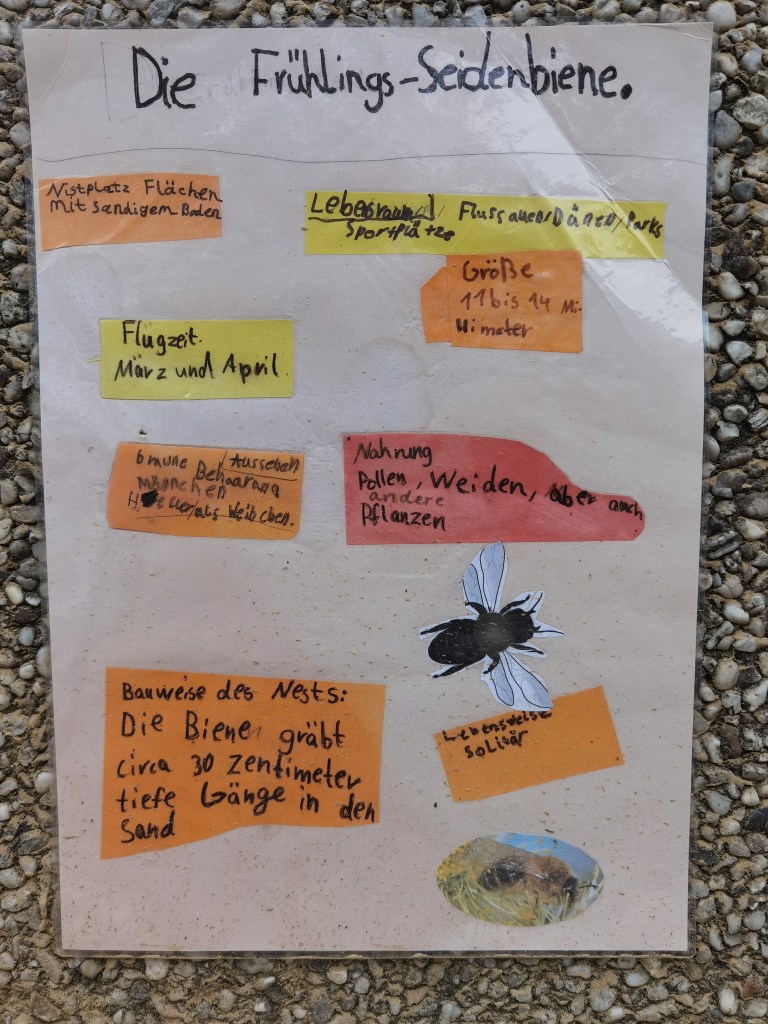 Die Frühlings-Seidenbiene.
Nistplatz Flächen
mit sandigem Boden
Lebensraum Flussauen/Dünen/Parks
Sportplätze
Größe
11 bis 14 Mi-
llimeter
Flugzeit.
März und April
braune Aussehen
Behaarung
Männchen
Heller als Weibchen.
Nahrung
Pollen, Weiden, aber auch
andere
Pflanzen
Bauweise des Nests:
Die Biene gräbt
circa 30 Zentimeter
tiefe Gänge in den
Sand
Lebensweise
Solitär